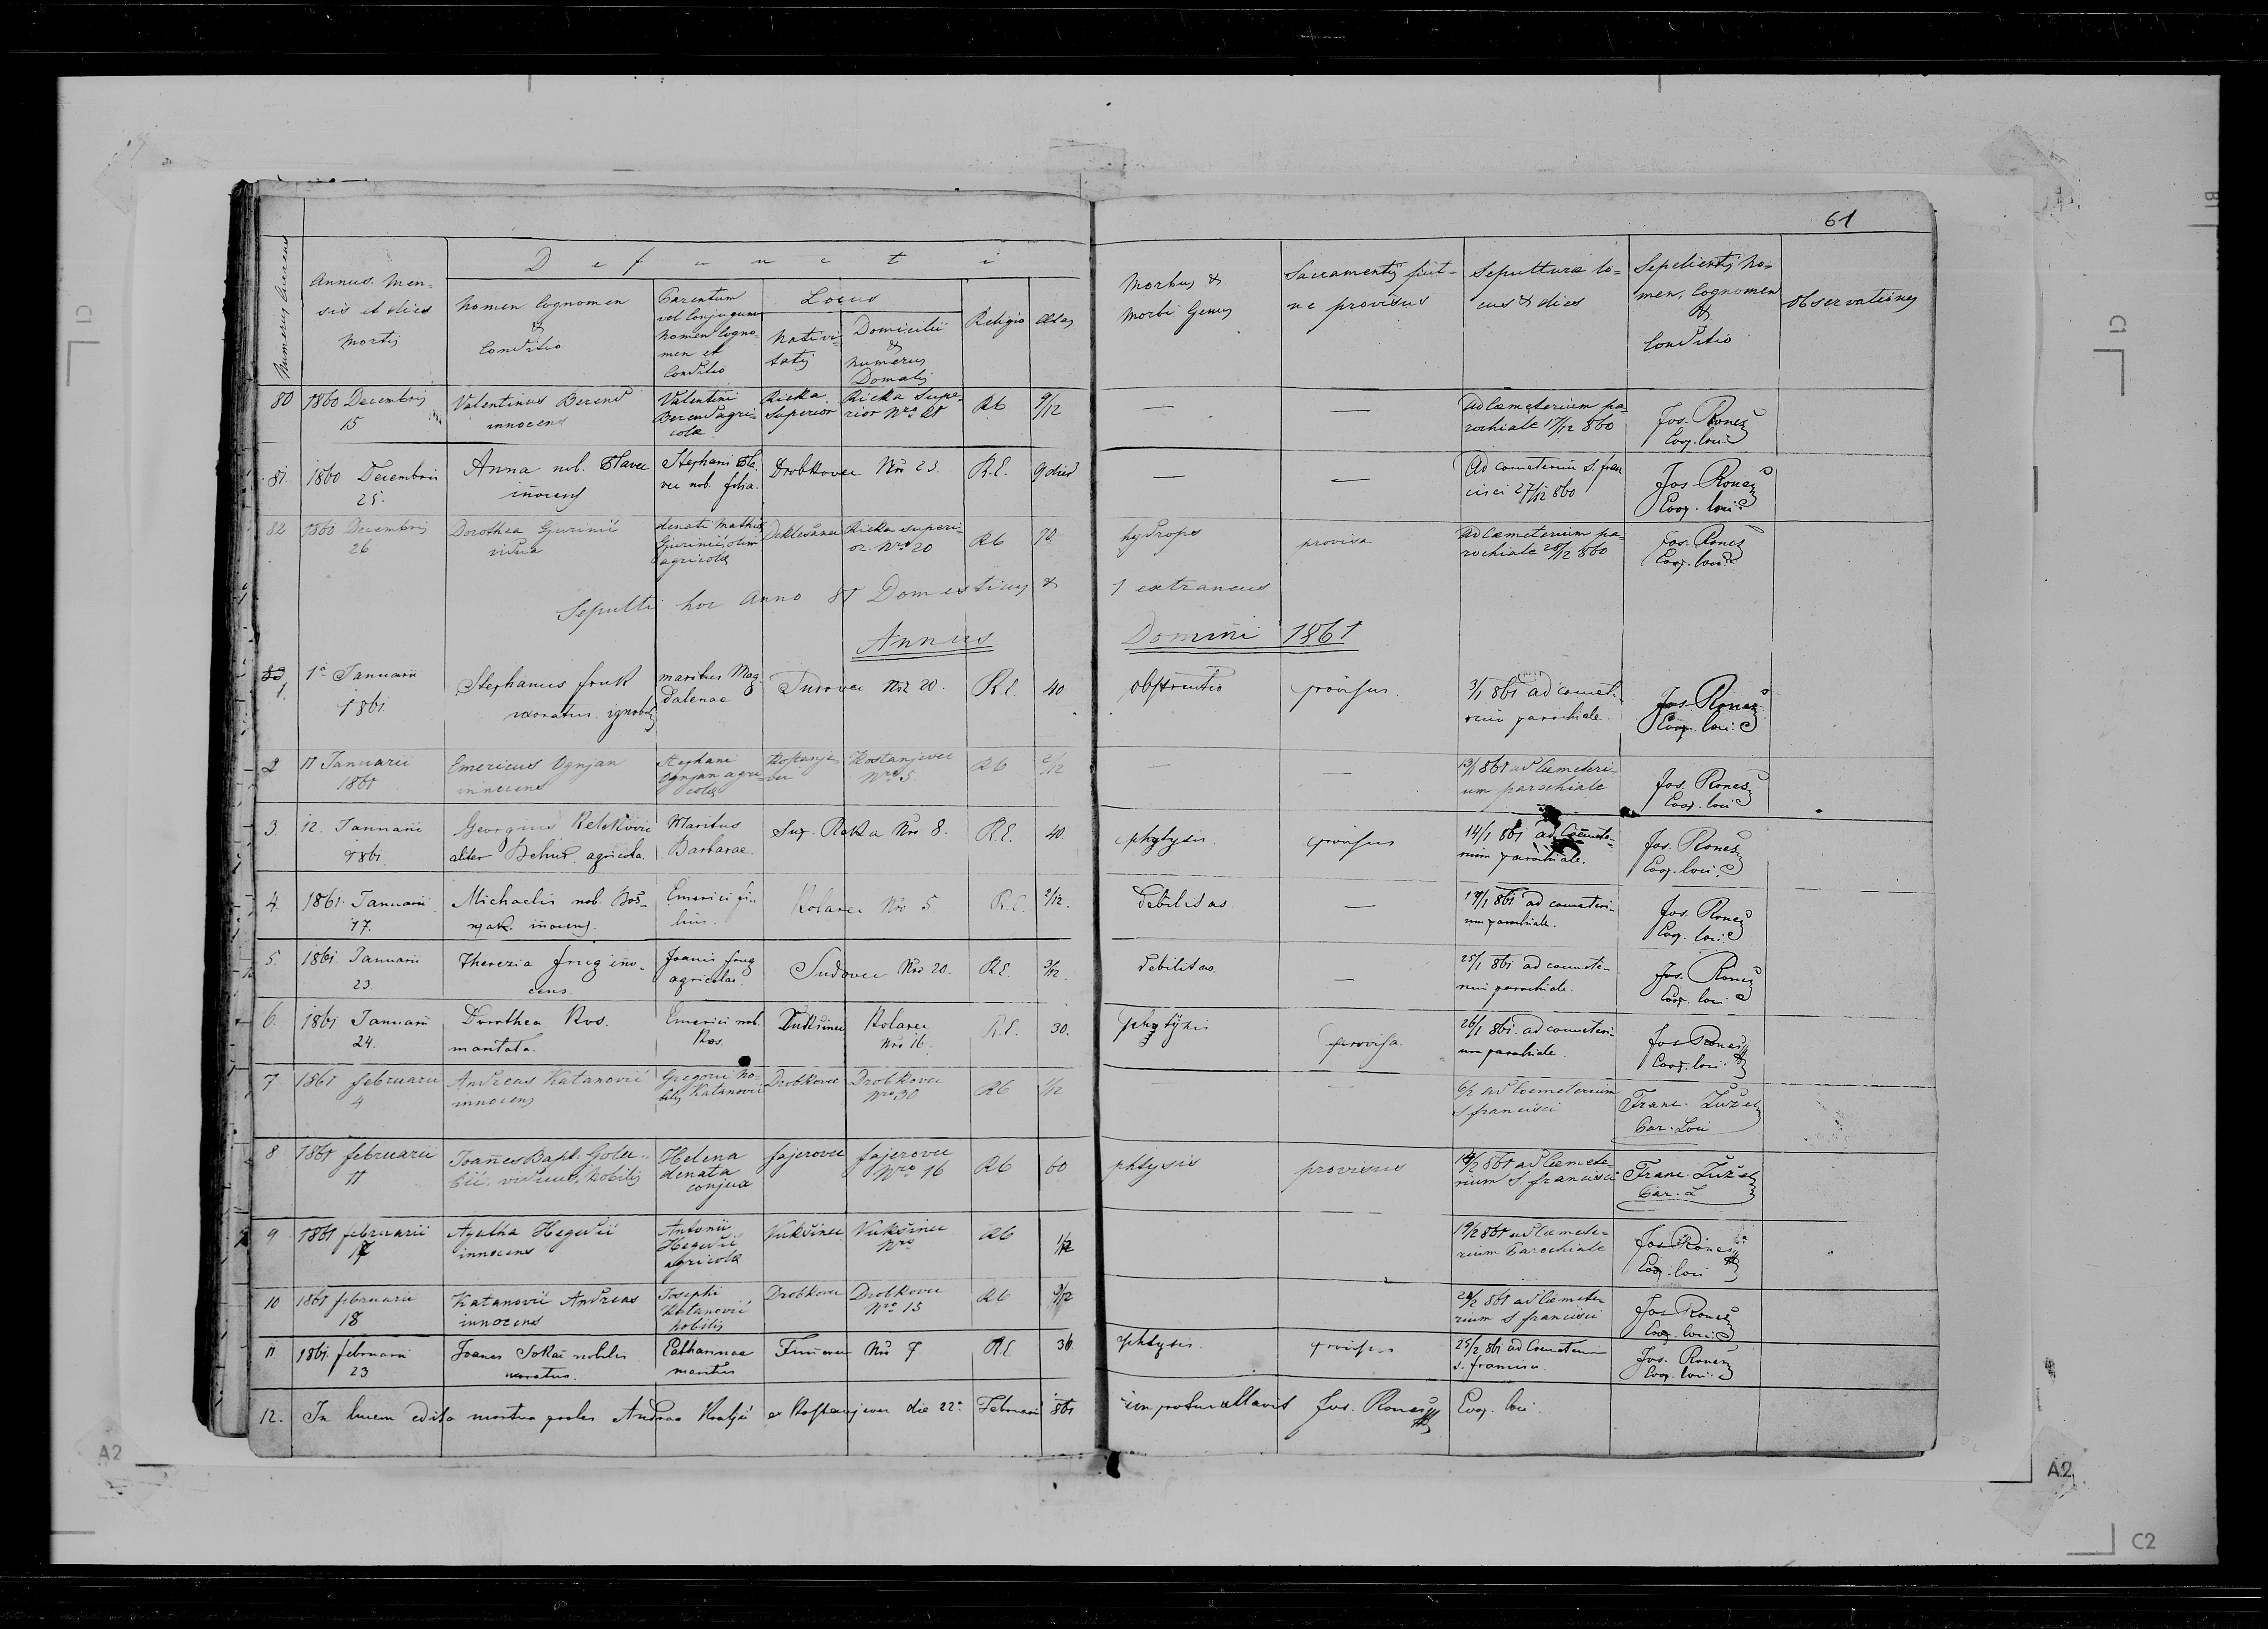 61
Numerus Currens
Annus Men-
sis et dies
Mortis
Defuncti
Nomen Cognomen
&
Conditio
Parentum
vel Conjugum
Nomen Cogno-
men et
Conditio
Locus
Nativi-
tatis
Domicilii
&
Numerus
Domatis
Religio
Ætas
Morbus &
Morbi Genus
Sacramentis fuit-
ne provisus
Sepulturæ lo-
cus & dies
Sepelientis No-
men, Cognomen
&
Conditio
Observationes
80 1860 Decembris
15
Valentinus Berend
innocens
Valentini
Berend agri-
colæ
Rieka
Superior
Rieka Supe-
rior Nro 21
RC
9/12
—
—
Ad Cæmeterium pa-
rochiale 17/12 860
Jos. Rones
Coop. loci
81. 1860 Decembris
25.
Anna nob. Slavec
iñocens
Stephani Sla-
vec nob. filia.
Drobkovec Nro 23.
R.C.
9 dies
—
—
Ad cometeriũ S. Fran
cisci 27/12 860
Jos Rones
Coop. loci
82 1860 Decembris
26
Dorothea Gjurinić
vidua
denati Mathiæ
Gjurinić, olim
agricolæ
Rieka superi-
or Nro 20
RC
70
hydrops
provisa
ad Cæmeterium pa-
rochiale 28/12 860
Jos. Rones
Coop. loci
Sepulti hoc Anno 81 Domesticus & 1 extraneus
Annus Domini 1861
1. 1a Januarii
1861
Stephanus Fruk
uxoratus ignobilis
maritus Mag-
dalenae
Nro 20.
R.C.
40
obstructio
provisus.
3/1 861 ad comet-
riũ parochiale.
Jos. Rones
Coop. loci
2 11 Januarii
1861
Emericus Ognjan
innocens
Stephani
Ognjan agri-
colæ
Kostanje-
vec
Kostanjevec
Nro 5
RC
2/12
—
—
13/1 861 ad Cæmeteri-
um parochiale
Jos. Rones
Coop. loci
3. 12. Januarii
1861.
Georgius
aliter Behud. agricola.
Maritus
Barbarae.
Sup. Reka Nro 8.
R.C.
40
phtysis.
provisus
14/1 861 ad Cœmete-
rium parochiale.
Jos. Rones
Coop. loci
4. 1861. Januarii
17.
Michaelis nob. Boš-
njak. iñocens.
Emerici fi-
lius.
Kolarec Nro 5.
R.C.
2/12.
debilitas
—
19/1 861 ad cometeri-
um parochiale.
Jos. Rones
Coop. loci
5. 1861. Januarii
23.
Therezia Frug iño-
cens.
Joanis Frug
agricolae.
Sudovec Nro 20.
R.C.
3/12
debilitas.
—
25/1 861 ad comete-
riũ parochiale.
Jos. Rones
Coop. loci
6. 1861 Januarii
24.
Dorothea Kos.
maritata.
Emerici nob.
Kos.
Vukšinec
Kolarec
Nro 16.
R.C.
30.
phtysis
provisa.
26/1 861. ad cometeri-
um parochiale.
Jos Rones
Coop. loci
7 1861 februarii
4
Andreas Katanović
innocens
Gregorii No-
bilis Katanović
Drobkovec
Drobkovec
Nro 30
RC
1/12
—
6/2 ad Coemeterium
S francisci
Franc. Žužel
Par. Loci
8 1861 februarii
11
Joañes Bapt. Golu-
bić. viduus. Nobilis
Helena
denata
conjux
fajerovec
fajerovec
Nro 16
RC
60
phtysis
provisus
14/2 861 ad Cæmete-
rium S. francisci
Franc. Žužel
Par. L
9 1861 februarii
17
Agatha Hegedić
innocens
Antonii
Hegedić
agricolæ
Vukšinec
Vukšinec
Nro
RC
1/12
19/2 861 ad Cæmete-
rium Parochiale
Jos Rones
Coop. loci
10 1861 februarii
18
Katanović Andreas
innocens
Josephi
Katanović
Nobilis
Drobkovec
Drobkovec
Nro 15
RC
9/12
20/2 861 ad Cæmete-
rium S francisci
Jos Rones
Coop. loci
11 1861. februarii
23
Joanes Sokač nobilis
uxoratus.
Catharinae
maritus
Nro 7
R.C.
36
phtysis.
provisus
25/2 861 ad Cœmeteriũ
S. Francisci.
Jos. Rones
Coop. loci
12. In lucem edita mortua proles Andreae Kraljić ex Kostanjevec die 22a Februarii 861 Jos. Rones Coop. loci.
A2
A2
C2
C1
C1
B1